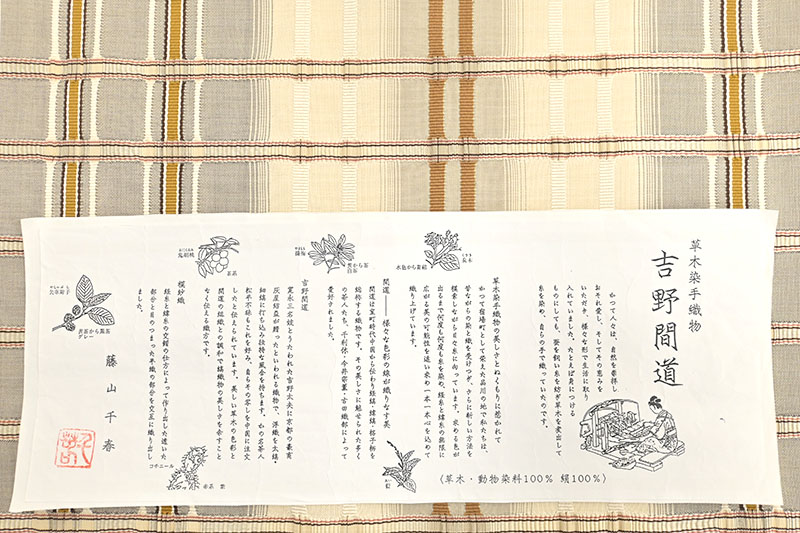 草木染手織物
吉野間道
かつて人々は、自然を崇拝し
おそれ愛し、そしてその恵みを
いただき、様々な形で生活に取り
入れていました。たとえば身につける
ものにしても、蚕を飼い糸を紡ぎ草木を煮出して
糸を染め、自らの手で織っていたのです。
〈草木・動物染料100% 絹100%〉
草木染手織物の美しさとぬくもりに惹かれて
かつて宿場町として栄えた品川の地で私たちは、
昔ながらの染と織を受けつぎ、さらに新しい方法を
模索しながら日々糸に向っています。求める色が
出るまで何度も何度も糸を染め、経糸と緯糸の無限に
広がる美の可能性を追い求め一本一本心を込めて
織り上げています。
間道──様々な色彩の縞が織りなす美
間道は室町時代中期から伝わり経縞・緯縞・格子柄を
総称する織物です。その美しさに魅せられた多く
の茶人たち、千利休・今井宗薫・古田織部によって
愛好されました。
吉野間道
寛永三名妓とうたわれた吉野太夫に京都の豪商
灰屋紹益が贈ったといわれる織物で、浮織を太縞・
細縞に打ち込み独特な風合を持ちます。かの名茶人
松平不昧もこれを好み、自らその写しを中国に注文
したと伝えられています。美しい草木の色彩と
間道の組織との調和で縞織物の美しさを余すこと
なく伝える織方です。
模紗織
経糸と緯糸の交錯の仕方によって作り出した透いた
部分と目のつまった平織の部分を交互に織り出し
ました。
藤山千春
コチニール